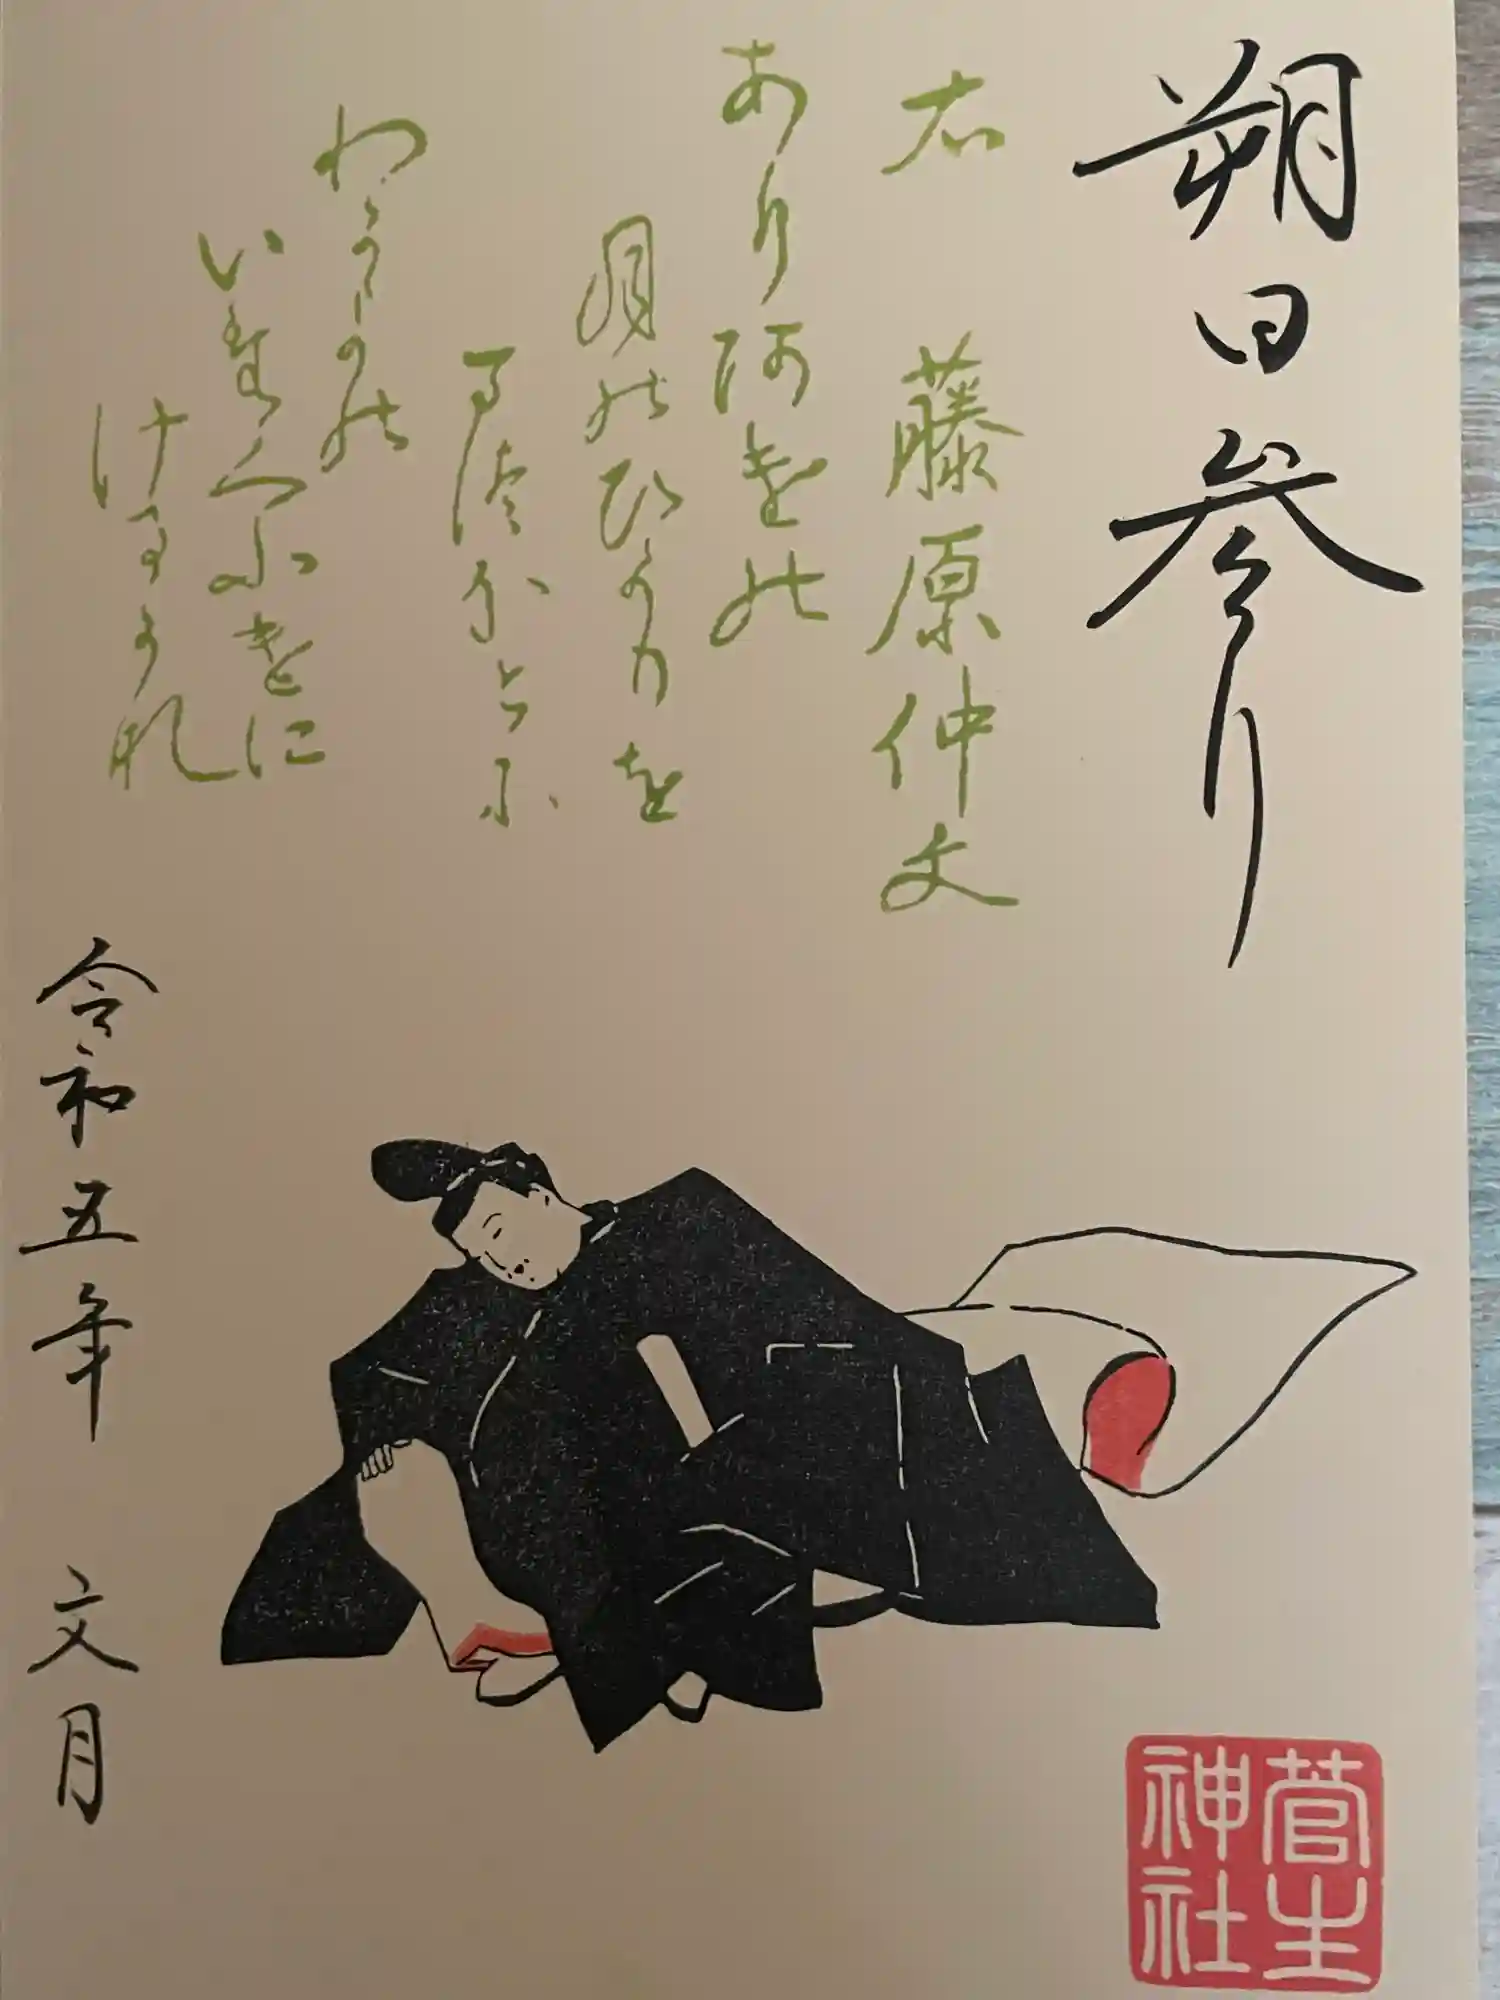 朔日参り
右 藤原仲文
あり阿けの
月のひかりを
まつほとに
わかよの
いたくふけに
けるかな
令和五年 文月
菅生
神社